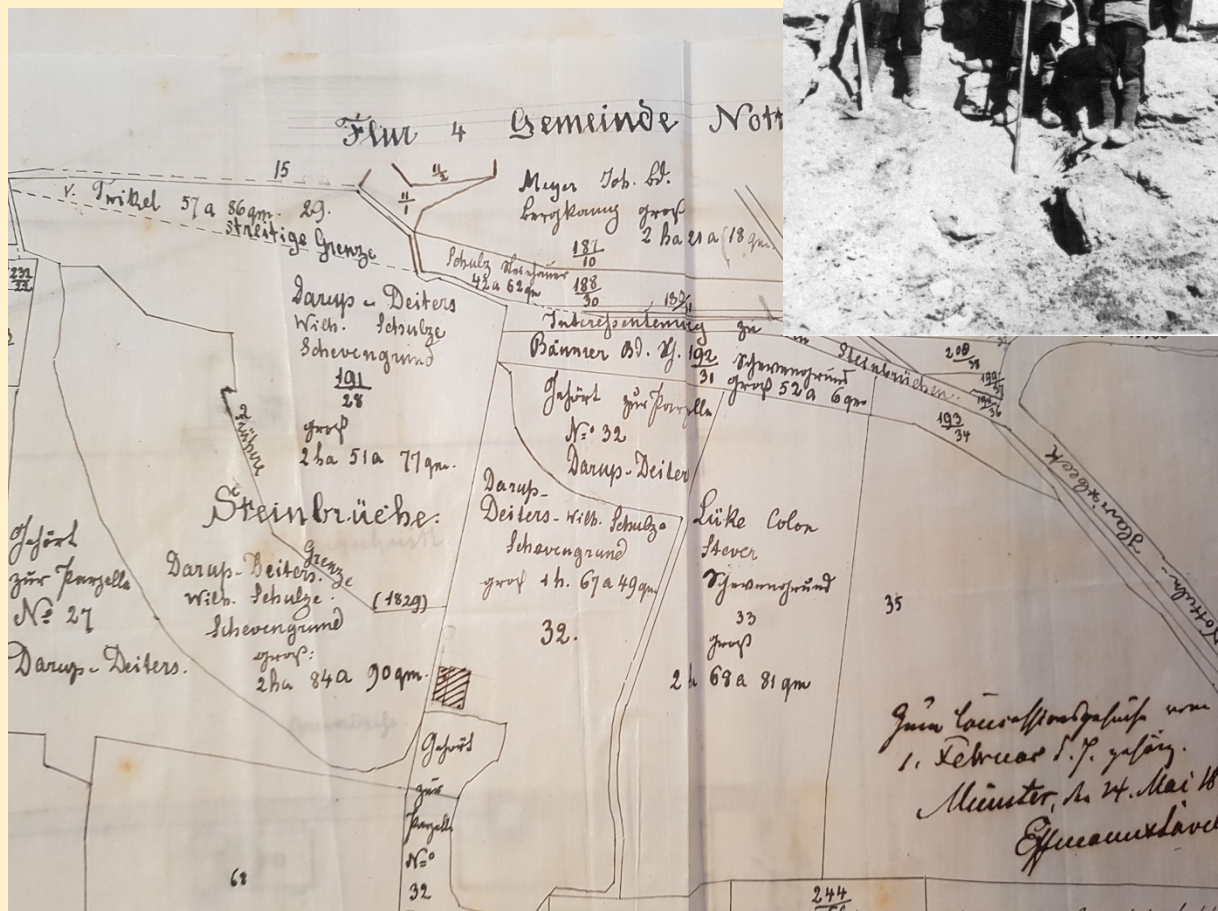 Flur 4 Gemeinde Nott
15
11/1
11/2
v. Twikel 57a 86qm. 29.
streitige Grenze
Meyer Joh. Bd.
Bergkamp groß
2 ha 21a 18 qm.
187/10
Schulz
42a 62qm
188/30
231/22
Darup-Deiters
Wilh. Schulze
Schevengrund
191/28
groß
2 ha 51a 77qm.
Interessentenweg zu den Steinbrüchen.
Bd. 192/31 Schevengrund
groß 52a 6qm
Gehört zur Parzelle
No. 32
Darup-Deiter
193/34
208/38
Frühere
Grenze
(1829)
Steinbrüche.
Gehört
zur Parzelle
No 27
Darup-Deiters.
Darup-Deiters.
Wilh. Schulze.
Schevengrund
groß:
2ha 84a 90qm.
Darup-
Deiters-Wilh. Schulze
Schevengrund
groß 1h. 67a 49qm
32.
Lüke Colon
Stever
Schevengrund
33
groß
2 h 68a 81qm
35
Nottuln-Havixbeck
Gehört
zur
Parzelle
No
32
68
244
Zum Concessionsgesuche vom
1. Februar d. J. gehörig.
Münster, den 24. Mai 18